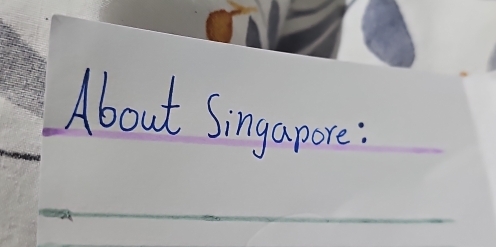 About Singapore: